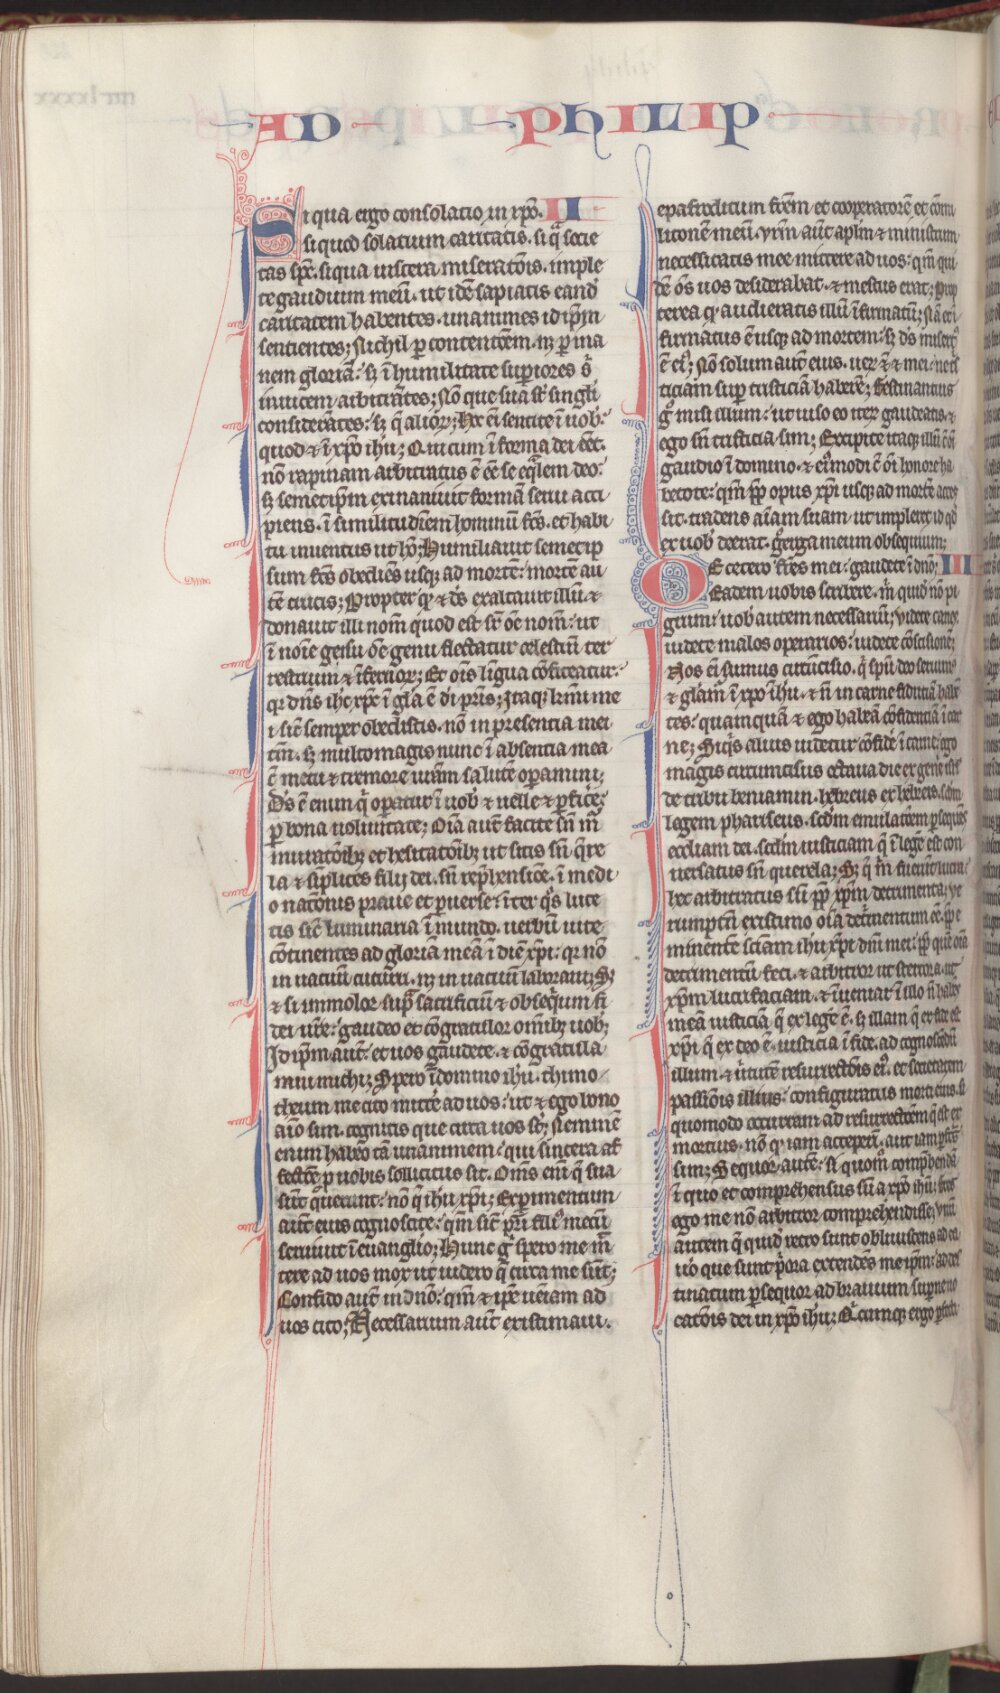 AD PHILIP
Si qua ergo consolacio in xp̄o. II
si quod solacium caritatis. si q̄ socie
tas sp̄c. si qua uiscera miseratōis. imple
te gaudium meū. ut idē sapiatis eandē
caritatem habentes. unanimes id ip̄m
sentientes; Nichil p̱ contentōem. n̄ p̱ ina
nem gloriā: sꝫ ī humilitate sup̱iores s̄
inuicem arbitrātes; Nō que sua s̄t singli
considerātes: sꝫ q̄ alioꝝ; Hoc ēī sentite ī uob̄:
quod ⁊ ī xp̄o ih̄u; Qui cum ī forma dei eēt.
nō rapinam arbitratus ē eē se eq̄lem deo:
sꝫ semetip̄m exinaniuit formā serui acci
piens. ī similitudinem hominū fc̄s. et habi
tu inuentus ut hō; Humiliauit semetip
sum fc̄s obediēs usqꝫ ad mortē: mortē au
tē crucis; Propter qḏ ⁊ dc̄s exaltauit illū ⁊
donauit illi nom̄ quod est sr̄ oē nom̄: ut
ī noīe ih̄u oē genu flectatur celestiū ter
restrium ⁊ īfernoꝝ; Et oīs lingua cōfiteatur:
qꝛ dn̄s ih̄c xp̄c ī gl̄a ē dī pr̄is; Itaqꝫ kr̄mi me
i sic̄ semper obedistis. nō in presentia mei
tm̄. sꝫ multo magis nunc ī absentia mea
cū metu ⁊ tremore ur̄am salutē op̱amini;
Ds̄ ē enim q̄ op̱atur ī uob̄ ⁊ uelle ⁊ p̱fic̄e:
p̱ bona uoluntate; Oīa aut̄ facite sn̄ m̄
muratōibꝫ et hesitatōibꝫ ut sitis sn̄ q̄re
la ⁊ siplices filii dei. sn̄ rep̱hensiōe. ī medi
o natōnis praue et p̱uerse: īter q̄s luce
tis sic̄ luminaria ī mundo. uerbū uite
cōtinentes ad gloriā meā ī diē xp̄i: qꝛ nō
in uacuū cucurri. n̄ in uacuū laboraui; Sꝫ
⁊ si immolor sup̱ sacrificiū ⁊ obseq̄um fi
dei ur̄e: gaudeo et cōgratulor om̄ibꝫ uob̄;
Id ip̄m aut̄: et uos gaudete. ⁊ cōgratula
mini michi; Spero ī domino ih̄u. thimo
theum me cito mitt̄e ad uos: ut ⁊ ego bono
aīo sim. cognitis que circa uos s̄t; Neminē
enim habeo tā unanimem: qui sincera af
fectōe p̱ uobis sollicitus sit. Om̄s enī q̄ sua
sūt querunt: nō q̄ ih̄u xp̄i; Exp̱imentum
aut̄ eius cognoscite: qm̄ sic̄ pr̄i filiꝰ mecū
seruiuit ī euanglio; Hunc g̊ spero me mit
tere ad uos mox ut uidero q̄ circa me sūt;
Confido aut̄ in dn̄o: qm̄ ⁊ ip̄e ueniam ad
uos cito; Necessarium aut̄ existimaui.
epafroditum fr̄em et cooperatorē et cōmi
litonē meū. ur̄m aut̄ ap̄lm ⁊ ministrum
necessitatis mee mittere ad uos: qm̄ qui
dē oēs uos desiderabat. ⁊ mestus erat; prop
terea qḏ audieratis illū īfirmatū; Nā ⁊ ī
firmatus ē usqꝫ ad mortem: sꝫ ds̄ misertꝰ
ē eiꝰ; Nō solum aut̄ eius. uerū ⁊ mei: ne t̄s
ticiam sup̱ tristiciā haberē; Festinantius
g̊ misi illum: ut uiso eo iterū gaudeatis. ⁊
ego sn̄ tristicia sim; Excipite itaqꝫ illū cū ōī
gaudio ī domino. ⁊ eiꝰmodi cū ōī honore ha
betote: qm̄ pp̄ opus xp̄i usqꝫ ad mortē acces
sit. tradens aīam suam. ut impleret id qḏ
ex uob̄ deerat. ḡ erga meum obsequium;
De cetero fr̄es mei: gaudete ī dn̄o; III
Eadem uobis scribere. m̄ quidē nō pi
grum: uob̄ autem necessariū; Videte canes:
uidete malos operarios: uidete cōcisionē;
Nos ēī sumus circūcisio. q̄ spū deo seruim̄
⁊ gl̄am̄ ī xp̄o ih̄u. ⁊ n̄ in carne fiduciā habē
tes: quamquā ⁊ ego habeā cōfidentiā ī car
ne; Siq̄s alius uidetur cōfid̄e ī carne. ego
magis circumcisus octaua die ex gene isrl̄.
de tribu beniamin. hebreus ex hebreis. scdm̄
legem phariseus. scdm̄ emulatōem p̱sequēs
eccliam dei. scdm̄ iusticiam q̄ ī lege est con
uersatus sn̄ querela; Sꝫ q̄ m̄ fuerūt lucra:
hec arbitratus sū pp̄ xp̄m detrimenta; Ve
rumptn̄ existimo oīa detrimentum eē. pp̄ e
minentē sciam ih̄u xp̄i dn̄i mei: pp̄ quē oīa
detrimentū feci. ⁊ arbitror ut stercora. ut
xp̄m lucrifaciam. ⁊ īueniar ī illo n̄ habēs
meā iusticiā q̄ ex lege ē. sꝫ illam q̄ ex fide est
xp̄i q̄ ex deo ē. iusticia ī fide. ad cognoscendū
illum. ⁊ uirtutē resurrectōis eiꝰ. et societatem
passiōis illius: configuratus morti eius. si
quomodo occurram ad resurrectōem q̄ est ex
mortuis. nō qḏ iam acceperī. aut iam p̱fectꝰ
sim; Sequor autē. si quom̄ comp̱hendā
ī quo et comprehensus sū a xp̄o ih̄u: fr̄es
ego me nō arbitror comprehendisse; Vnū
autem q̄ quidē retro sunt obliuiscens ad ea
uō que sunt p̄ora extendēs me ip̄m: ad des
tinatum p̱sequor ad brauium sup̱ne uo
catōis dei in xp̄o ih̄u; Qicumqꝫ ergo p̱fecti